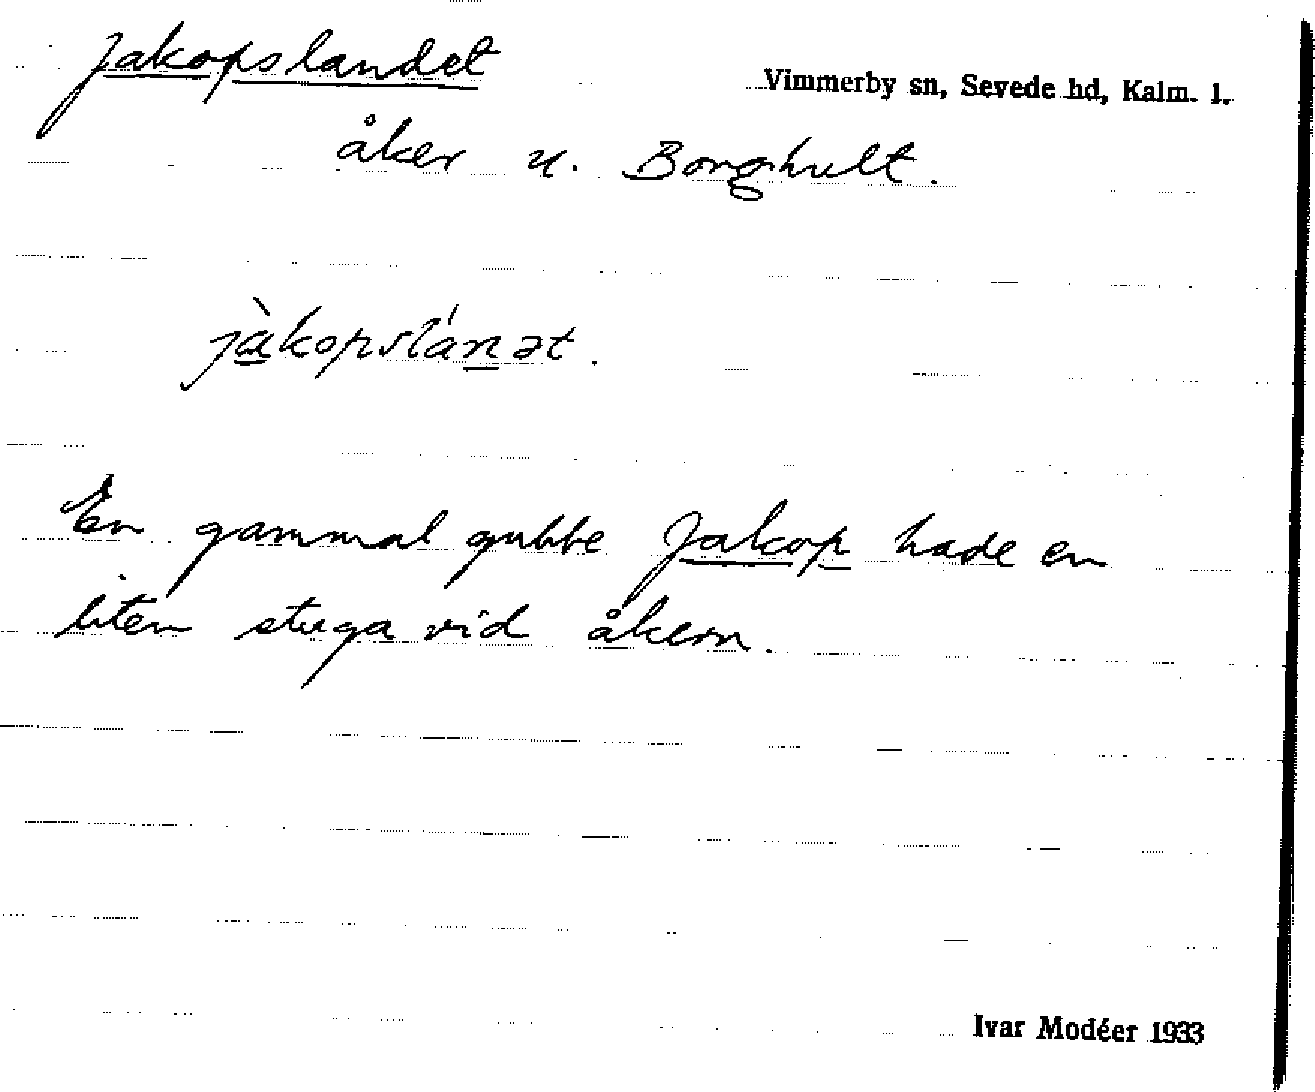 Jakopslandet
Vimmerby sn, Sevede hd, Kalm. l.
åker u. Borghult.
jàkopslánət.
En gammal gubbe Jakop hade en
liten stuga vid åkern.
Ivar Modéer 1933